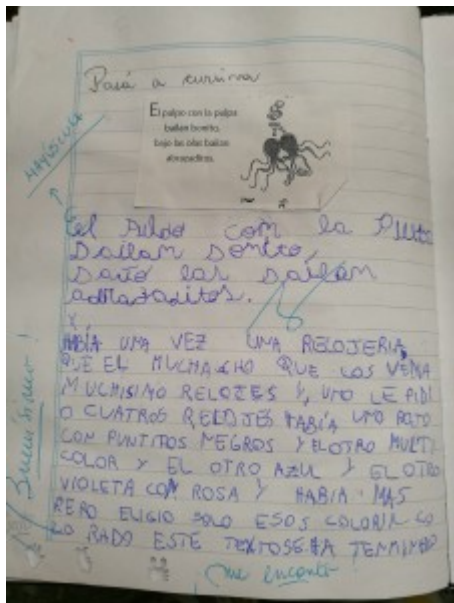 Pasá a cursiva
El pulpo con la pulpa
bailan bonito,
bajo las olas bailan
abrazaditos.
MAYÚSCULA
el Pulpo com la Pulpa
bailam bonito,
bajo las bailam
abrazaditos.
Y,
HABÍA UMA VEZ UMA RELOJERIA
QUE EL MUCHACHO QUE LOS VEMIA
MUCHISIMO RELOJES Y, UMO LE PIDI
O CUATROS RELOJES HABÍA UMO ROJO
COM PUMTITOS MEGROS Y EL OTRO MULTI
COLOR Y EL OTRO AZUL Y EL OTRO
VIOLETA COM ROSA Y HABIA MAS
PERO ELIGIO SOLO ESOS COLORIM CO
LO RADO ESTE TEXTO SE HA TERMIMADO
Buenísimo!
¡me encantó!